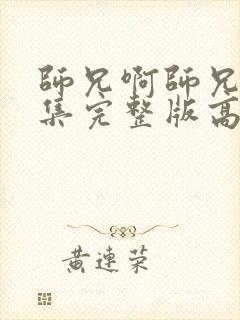 師兄啊師兄
集完整版高
黃連荣